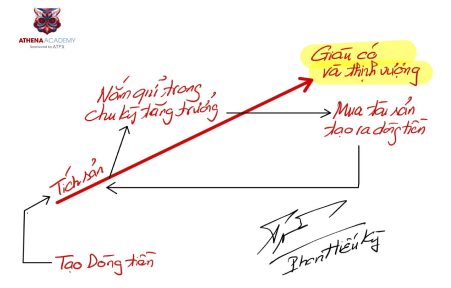 ATHENA ACADEMY
Sponsored by ATPS
Giàu có
và thịnh vượng
Nắm giữ trong
chu kỳ tăng trưởng
Mua tài sản
tạo ra dòng tiền
Tích sản
Tạo Dòng tiền
Phan Hiếu Kỳ